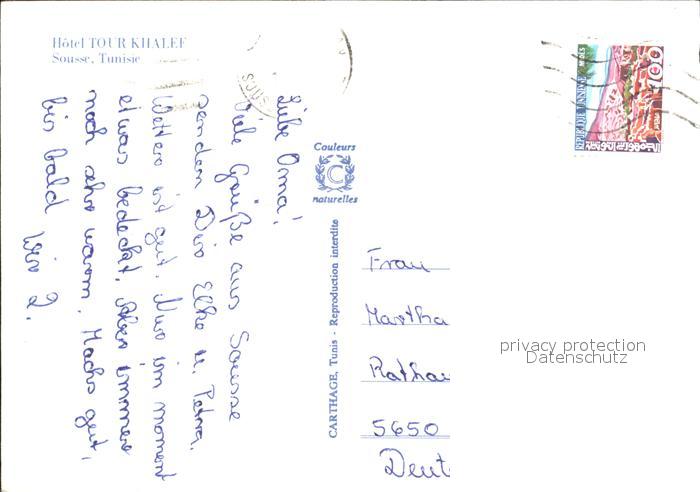 Hôtel TOUR KHALEF
Sousse, Tunisie
Liebe Oma!
Viele Grüße aus Sousse
senden Dir Elke u. Petra.
Wetter ist gut. Nur im moment
etwas bedeckt. Aber immer
noch sehr warm. Machs gut,
bis bald
Wir 2.
Couleurs
C
naturelles
CARTHAGE, Tunis - Reproduction interdite
REPUBLIQUE TUNISIENNE
100
SOUS
Frau
Martha
Rathau
5650
Deut
privacy protection
Datenschutz